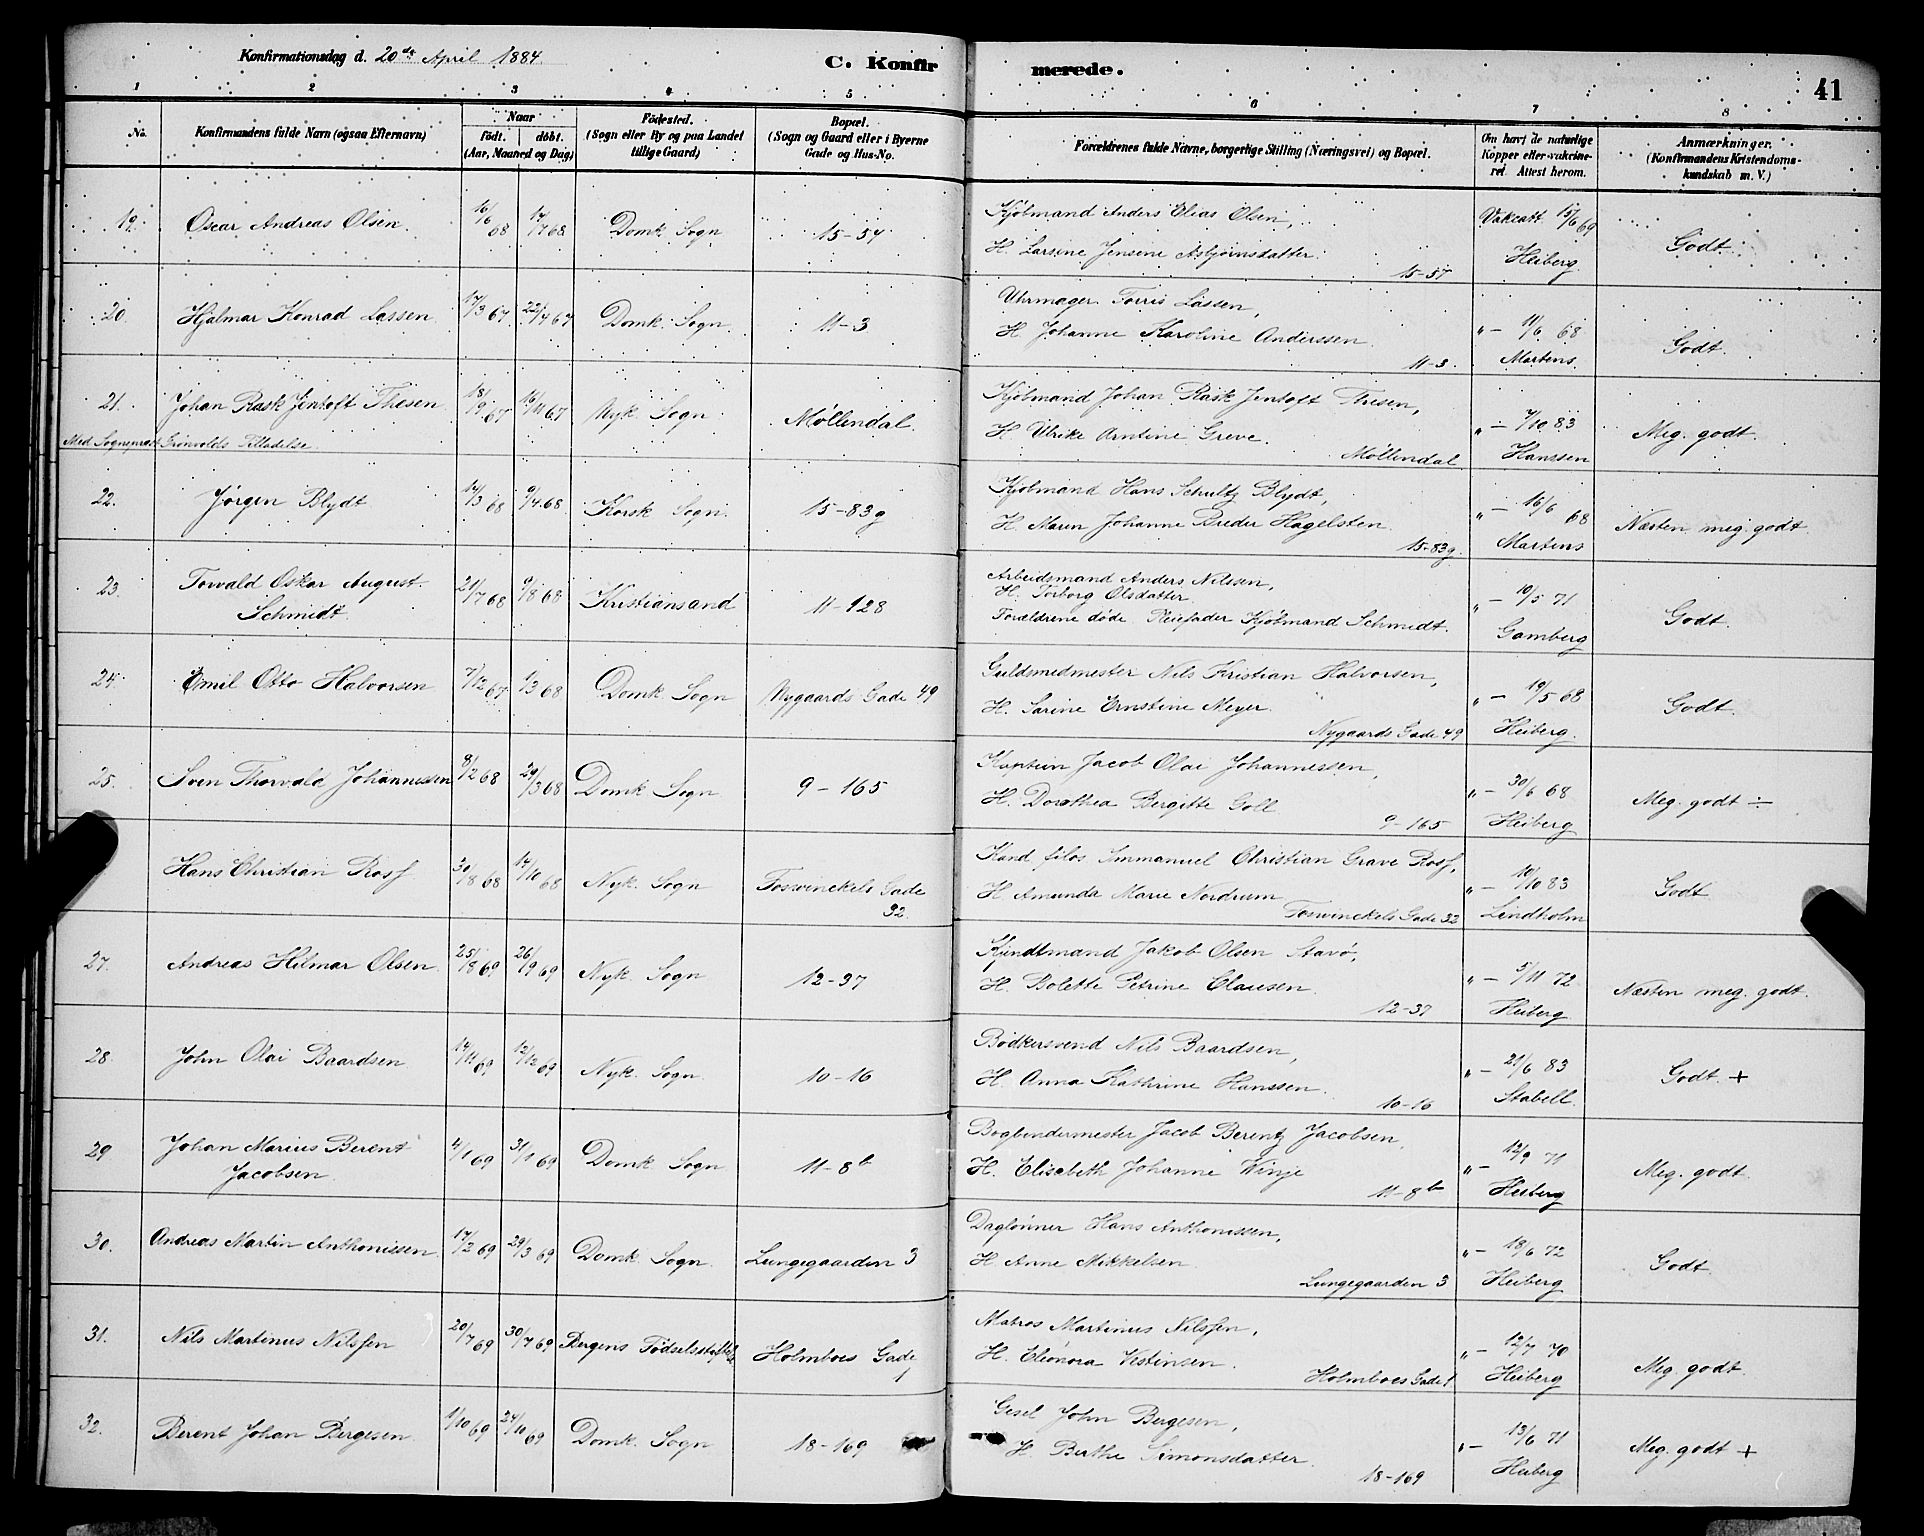 Konfirmationsdag d. 20de April 1884.
C. Konfirmerede.
41
1 2 3 4 5 6 7 8
No.
Konfirmandens fulde Navn (ogsaa Efternavn)
Naar
Födt. döbt.
(Aar, Maaned og Dag)
Födested.
(Sogn eller By og paa Landet
tillige Gaard)
Bopæl.
(Sogn og Gaard eller i Byerne
Gade og Hus-No.
Forældrenes fulde Navne, borgerlige Stilling (Næringsvei) og Bopæl.
Om havt de naturlige
Kopper eller vakcine-
ret. Attest herom.
Anmærkninger.
(Konfirmandens Kristendoms-
kundskab m. V.)
19. Oscar Andreas Olsen. 16/6 68 14/7 68 Domk. Sogn 15-57
Kjöbmand Anders Elias Olsen,
H. Larsine Jensine Asbjørnsdatter.
15-57
Vakcatt 15/6 69
Heiberg.
Godt.
20. Hjalmar Konrad Lassen 17/3 67 22/4 67 Domk. Sogn. 11-3
Uhrmager Torris Lassen,
H. Johanne Karoline Anderssen.
11-3.
" — 11/6 68
Martens.
Godt.
21. Johan Rask Jentoft Thesen 18/9 67 16/11 67 Nyk. Sogn. Møllendal.
Med Sognepræst Grönvolds Tilladelse.
Kjöbmand Johan Rask Jentoft Thesen,
H. Ulrike Arntine Greve.
Møllendal
" — 7/10 83
Hanssen
Meg. godt.
22. Jørgen Blydt 14/3 68 9/4 68 Korsk. Sogn. 15-83g
Kjöbmand Hans Schultz Blydt,
H. Maren Johanne Breder Hagelsten.
15-83g.
" — 16/6 68
Martens
Næsten meg. godt.
23. Torvald Oskar August
Schmidt. 21/7 68 9/8 68 Kristiansand 11-128
Arbeidsmand Anders Nilssen,
H. Torborg Olsdatter
Forældrene døde. Pleiefader Kjöbmand Schmidt.
" — 10/5 71
Gamberg
Godt.
24. Emil Otto Halvorsen 7/12 67 1/3 68 Domk. Sogn Nygaards Gade 49
Guldsmedmester Nils Kristian Halvorsen,
H. Sarine Ernstine Meyer.
Nygaards Gade 49
" — 19/5 68
Heiberg.
Godt.
25. Sven Thorvald Johannessen 8/2 68 29/3 68 Domk. Sogn 9-165
Kaptein Jacob Olai Johannessen,
H. Dorothea Bergitte Goll
9-165
" — 30/6 68
Heiberg
Meg. godt ÷
Hans Christian Rosf 30/8 68 14/10 68 Nyk. Sogn Foswinckels Gade
32.
Kand filos Immanuel Christian Grave Rosf,
H. Amunda Marie Nordrum
Foswinckels Gade 32
" — 10/10 83
Lindholm
Godt.
27. Andreas Hilmar Olsen. 25/8 69 26/9 69 Nyk. Sogn 12-37
Kjendtmand Jakob Olsen Stavø,
H. Bolette Petrine Clausen.
12-37
" — 5/11 72
Heiberg.
Næsten meg. godt.
28. John Olai Baardsen. 14/11 69 12/12 69 Nyk. Sogn. 10-16
Bödkersvend Nils Baardsen,
H. Anna Kathrine Hanssen.
10-16
" — 21/6 83
Stabell.
Godt. +
29 Johan Marius Berent
Jacobsen. 4/1 69 31/1 69 Domk. Sogn 11-8b
Bogbindermester Jacob Berentz Jacobsen,
H. Elisabeth Johanne Winje
11-8b
" — 12/9 71
Heiberg
Meg. godt.
30. Andreas Martin Anthonissen. 17/2 69 29/3 69 Domk. Sogn. Lungegaarden 3
Daglönner Hans Anthonissen,
H. Anne Mikkelsen.
Lungegaarden 3
" — 18/6 72
Heiberg
Godt.
31. Nils Martinus Nilsfen 20/7 69 30/7 69 Bergens Födselsstiftelse Holmboes Gade
1
Matros Martinus Nilsfen,
H. Eleonora Vestinsen.
Holmboes Gade 1
" — 12/7 70
Heiberg
Meg. godt.
32. Berent Johan Bergesen. 1/10 69 24/10 69 Domk. Sogn 18-169
Gesel John Bergesen,
H. Berthe Simonsdatter.
18-169
" — 13/6 71
Heiberg
Meg. godt +